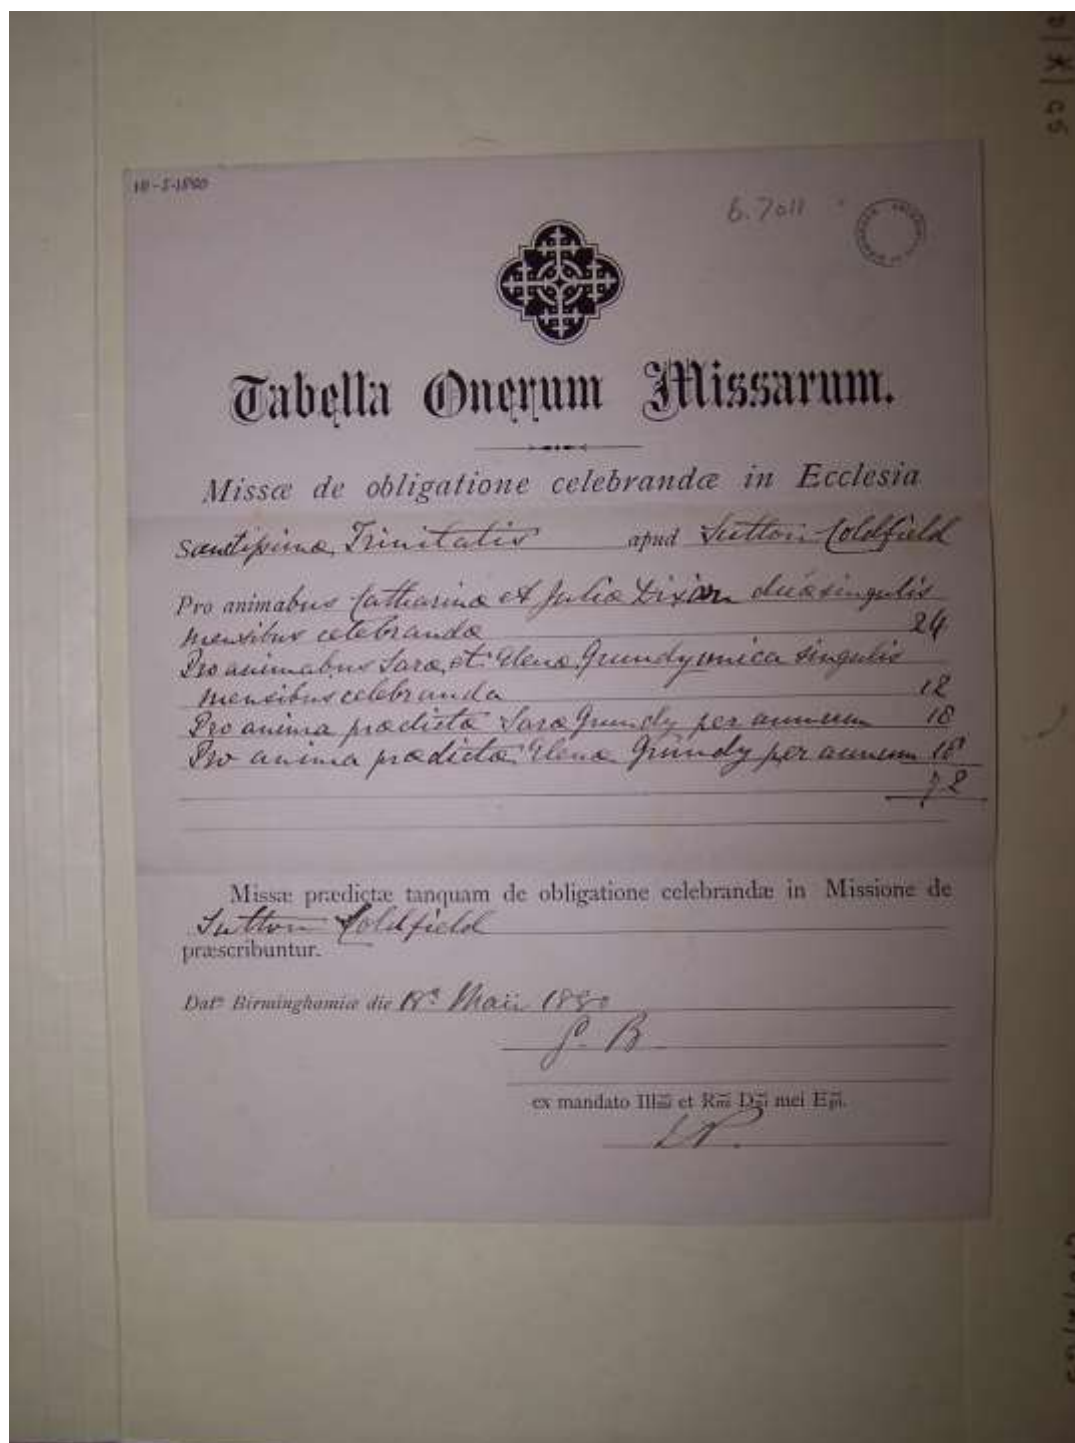 18-5-1880
B. 7011
Tabella Onerum Missarum.
Missæ de obligatione celebrandæ in Ecclesia
Sanctissimæ Trinitatis apud Sutton Coldfield
Pro animabus Catharinæ et Juliæ Dixon duæ singulis
mensibus celebrandæ 24
Pro animabus Saræ et Elenæ Grundy unica singulis
mensibus celebranda 12
Pro anima prædictæ Saræ Grundy per annum 18
Pro anima prædictæ Elenæ Grundy per annum 18
72
Missæ prædictæ tanquam de obligatione celebrandæ in Missione de
Sutton Coldfield
præscribuntur.
Datᵒ Birminghamiæ die 18ᵃ Maii 1880
ex mandato Illmi et Rmi Dni mei Epi.